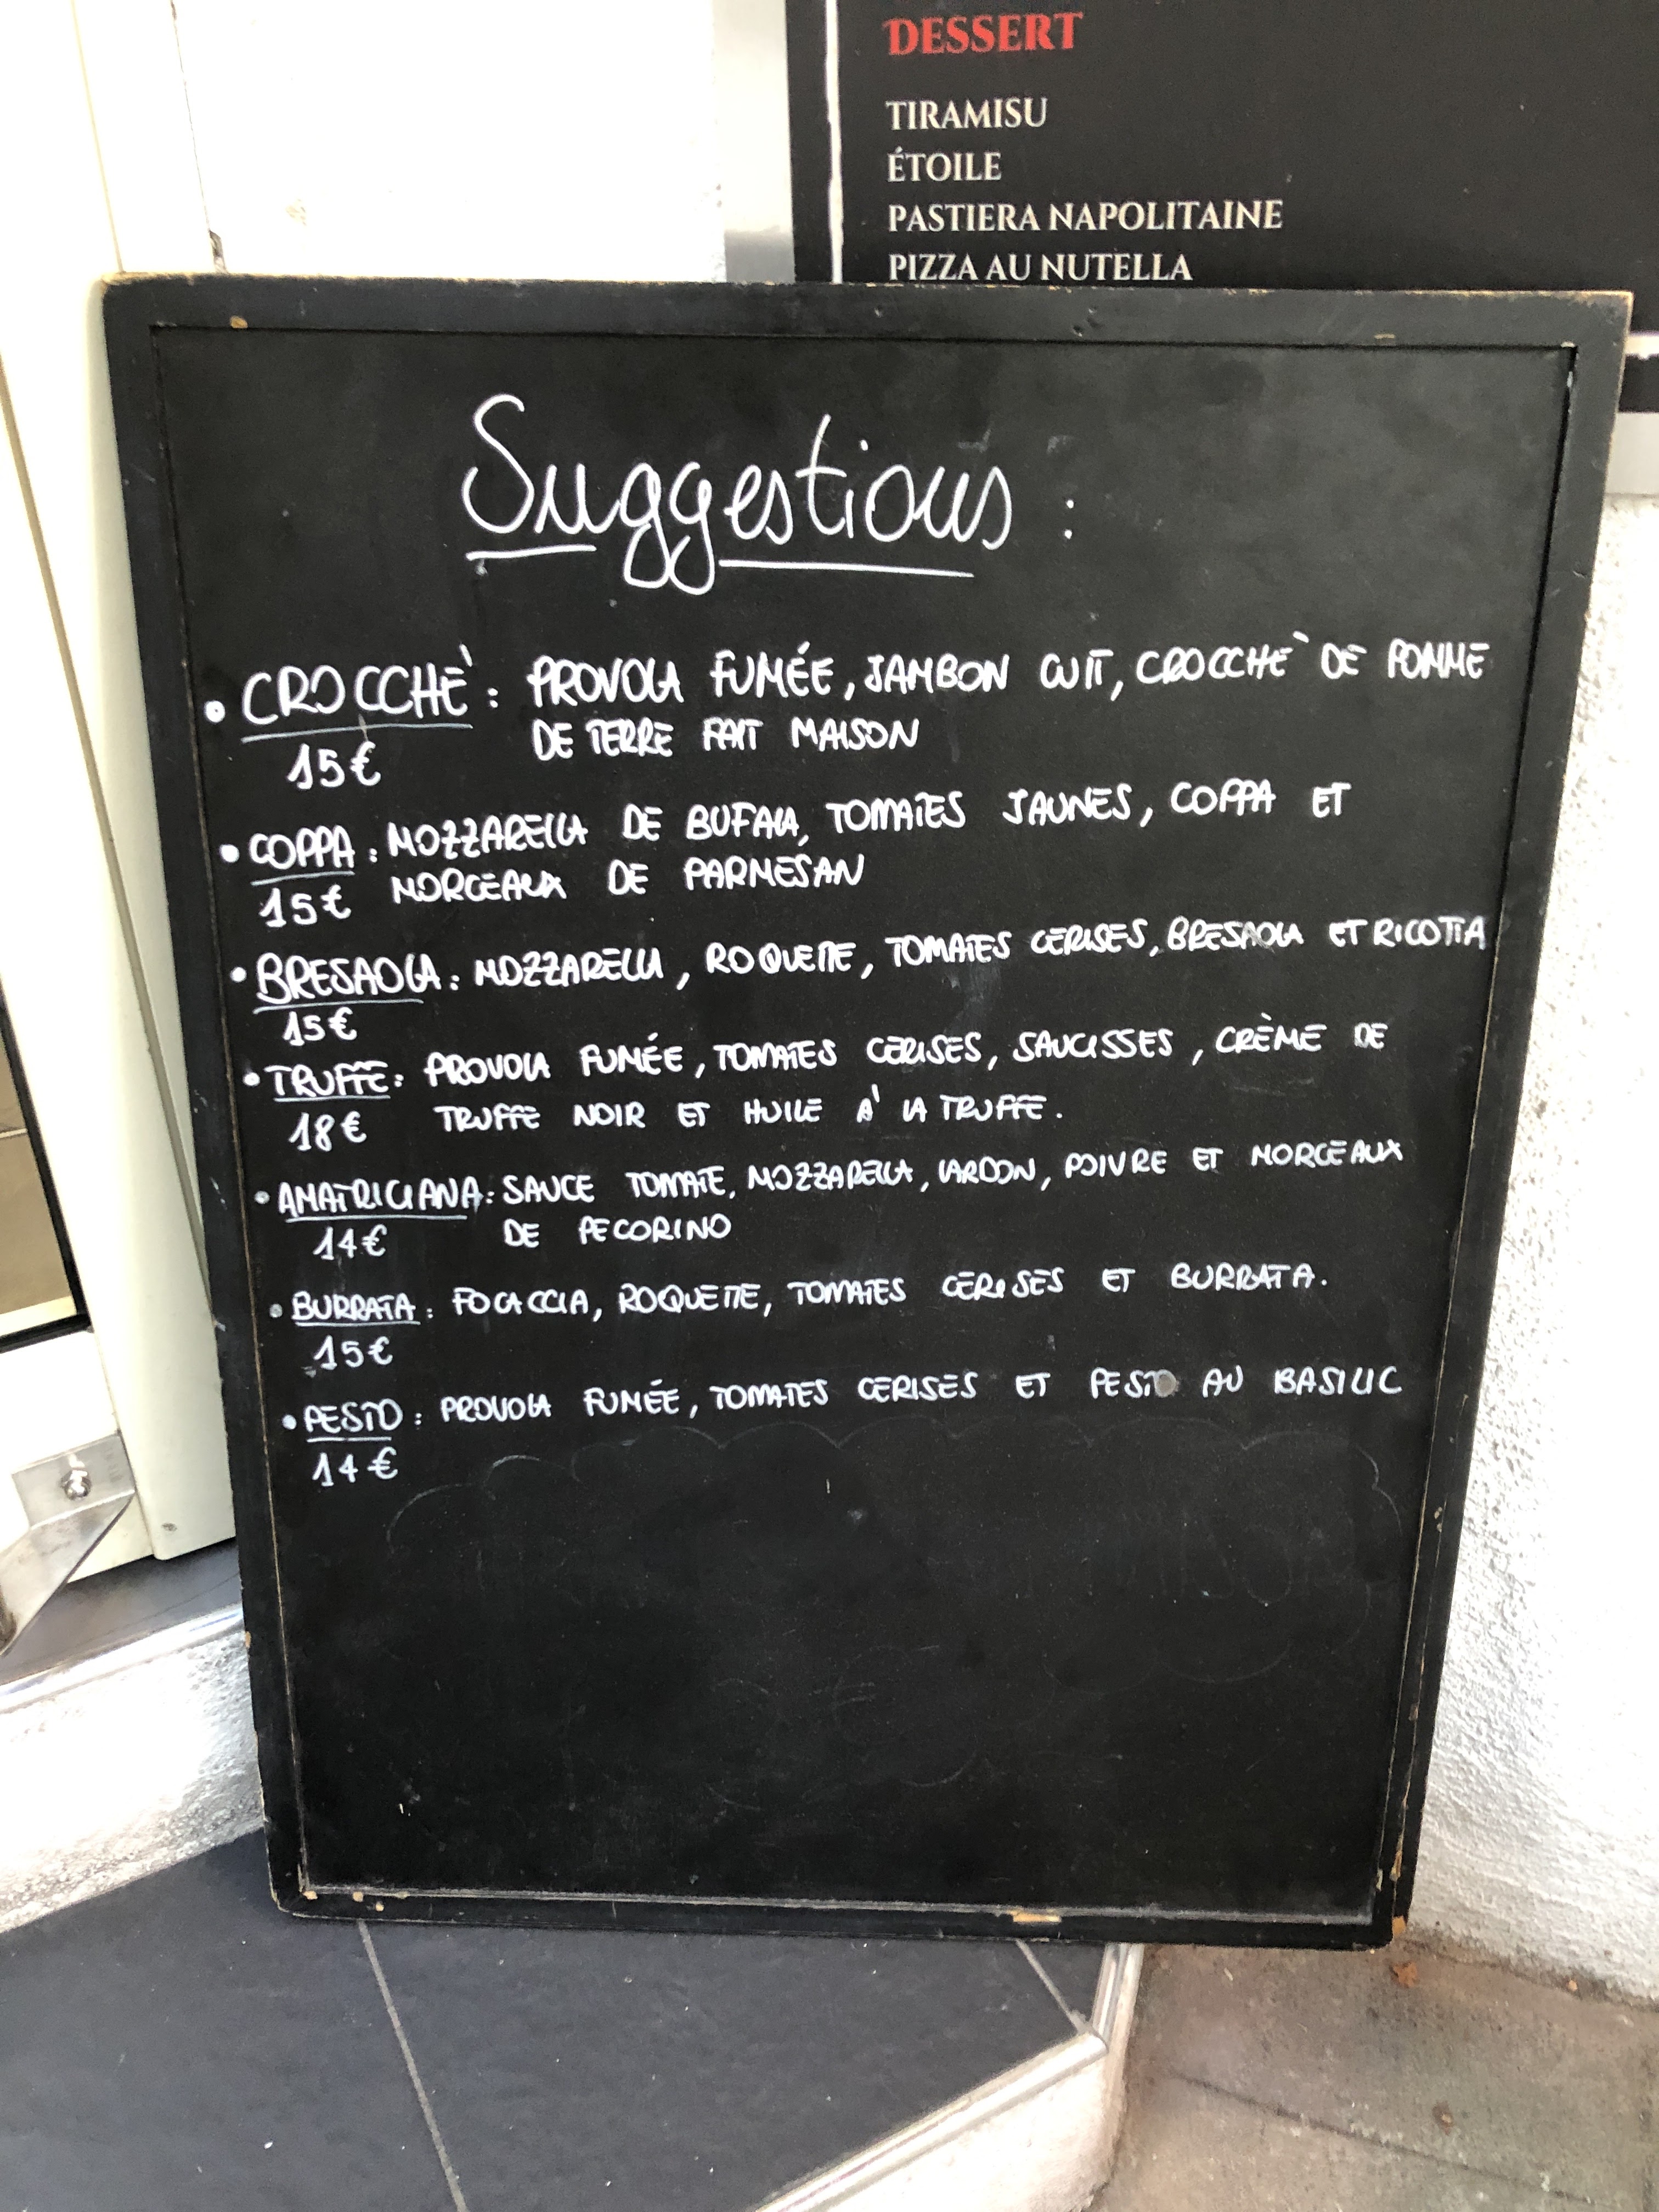 DESSERT
TIRAMISU
ÉTOILE
PASTIERA NAPOLITAINE
PIZZA AU NUTELLA
Suggestions :
• CROCCHÈ : PROVOLA FUMÉE, JAMBON CUIT, CROCCHÈ DE POMME
DE TERRE FAIT MAISON
15€
• COPPA : MOZZARELLA DE BUFALA, TOMATES JAUNES, COPPA ET
15€ MORCEAUX DE PARMESAN
• BRESAOLA : MOZZARELLA, ROQUETTE, TOMATES CERISES, BRESAOLA ET RICOTTA
15€
• TRUFFE : PROVOLA FUMÉE, TOMATES CERISES, SAUCISSES, CRÈME DE
18€ TRUFFE NOIR ET HUILE À LA TRUFFE.
• AMATRICIANA : SAUCE TOMATE, MOZZARELLA, LARDON, POIVRE ET MORCEAUX
14€ DE PECORINO
• BURRATA : FOCACCIA, ROQUETTE, TOMATES CERISES ET BURRATA.
15€
• PESTO : PROVOLA FUMÉE, TOMATES CERISES ET PESTO AU BASILIC
14€